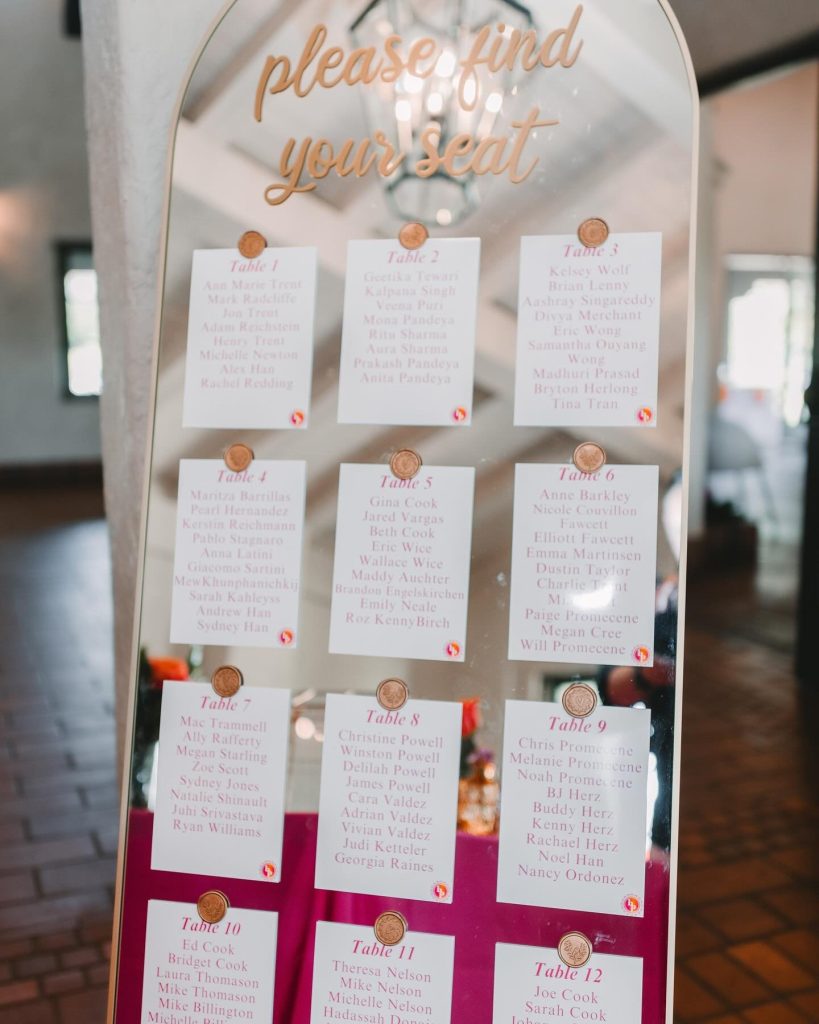 please find
your seat
Table 1
Ann Marie Trent
Mark Radcliffe
Jon Trent
Adam Reichstein
Henry Trent
Michelle Newton
Alex Han
Rachel Redding
Table 2
Geetika Tewari
Kalpana Singh
Veena Puri
Mona Pandeya
Ritu Sharma
Aura Sharma
Prakash Pandeya
Anita Pandeya
Table 3
Kelsey Wolf
Brian Lenny
Aashray Singareddy
Divya Merchant
Eric Wong
Samantha Ouyang
Wong
Madhuri Prasad
Bryton Herlong
Tina Tran
Table 4
Maritza Barrillas
Pearl Hernandez
Kerstin Reichmann
Pablo Stagnaro
Anna Latini
Giacomo Sartini
MewKhunphanichkij
Sarah Kahleyss
Andrew Han
Sydney Han
Table 5
Gina Cook
Jared Vargas
Beth Cook
Eric Wice
Wallace Wice
Maddy Auchter
Brandon Engelskirchen
Emily Neale
Roz KennyBirch
Table 6
Anne Barkley
Nicole Couvillon
Fawcett
Elliott Fawcett
Emma Martinsen
Dustin Taylor
Charlie Trent
Paige Promecene
Megan Cree
Will Promecene
Table 7
Mac Trammell
Ally Rafferty
Megan Starling
Zoe Scott
Sydney Jones
Natalie Shinault
Juhi Srivastava
Ryan Williams
Table 8
Christine Powell
Winston Powell
Delilah Powell
James Powell
Cara Valdez
Adrian Valdez
Vivian Valdez
Judi Ketteler
Georgia Raines
Table 9
Chris Promecene
Melanie Promecene
Noah Promecene
BJ Herz
Buddy Herz
Kenny Herz
Rachael Herz
Noel Han
Nancy Ordonez
Table 10
Ed Cook
Bridget Cook
Laura Thomason
Mike Thomason
Mike Billington
Michelle
Table 11
Theresa Nelson
Mike Nelson
Michelle Nelson
Hadassah
Table 12
Joe Cook
Sarah Cook